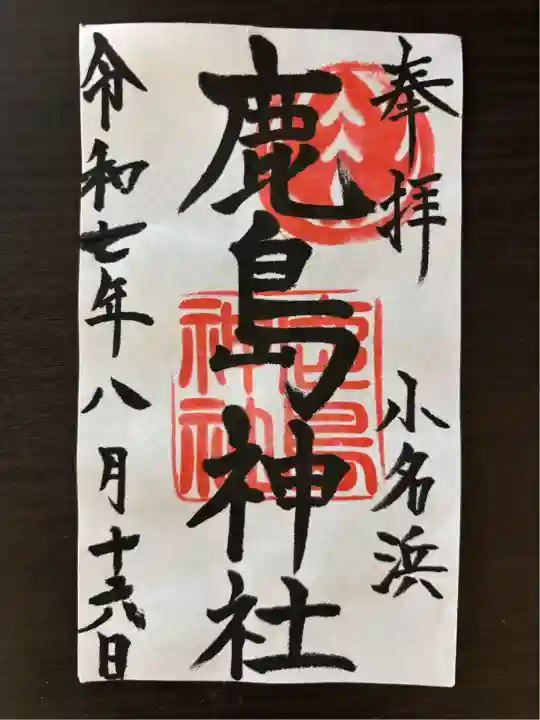 奉拝 小名浜
鹿島神社
鹿島
神社
令和七年八月十六日